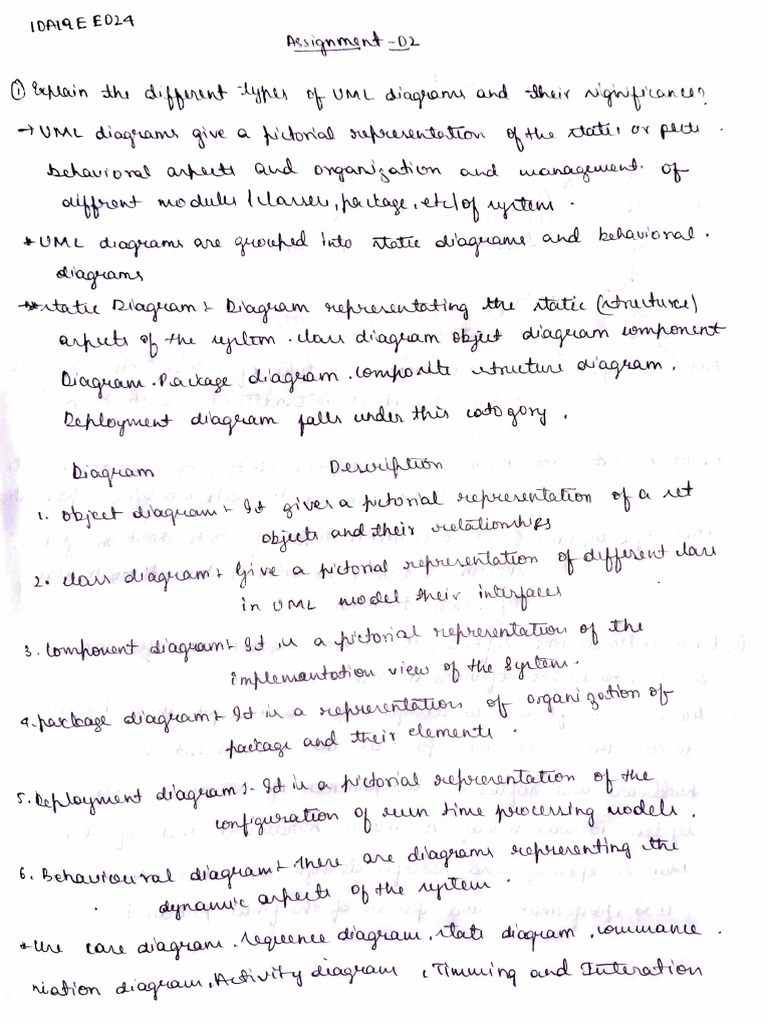 1DA19EE024
Assignment-02
① Explain the different types of UML diagrams and their significance?
→ UML diagrams give a pictorial representation of the static or pects.
behavioral aspects and organization and management of
diffrent modules (classes, package, etc) of system.
* UML diagrams are grouped into static diagrams and behavioral.
diagrams
** static Diagram :- Diagram representating the static (structures)
aspects of the system. class diagram object diagram component
Diagram. Package diagram. composite structure diagram.
Deployment diagram falls under this catogory.
Diagram Description
1. object diagram :- It gives a pictorial representation of a set
objects and their relationships
2. class diagram :- Give a pictorial representation of different class
in UML model their interfaces
3. component diagram :- It is a pictorial representation of the
implemantation view of the system.
4. package diagram :- It is a representations of organization of
package and their elements.
5. Deployment diagram :- It is a pictorial representation of the
configuration of run time processing models.
6. Behavioural diagram :- there are diagrams representing the
dynamic aspects of the system.
* Use case diagram. sequence diagram, state diagram, commance.
niation diagram, Activity diagram, Timming and Interation